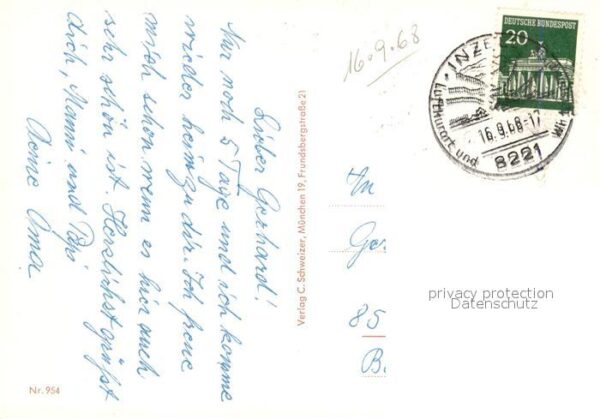 Lieber Gerhard!
Nur noch 5 Tage und ich komme
wieder heim zu dir. Ich freue
mich schon, wenn es hier auch
sehr schön ist. Herzlichst grüßt
dich, Mami und Papi
Deine Oma.
Nr. 954
Verlag C. Schweizer, München 19, Frundsbergstraße 21
16.9.68
DEUTSCHE BUNDESPOST
20
INZELL
Luftkurort und
16.9.68-17
8221
An
Ger
85
B.
privacy protection
Datenschutz